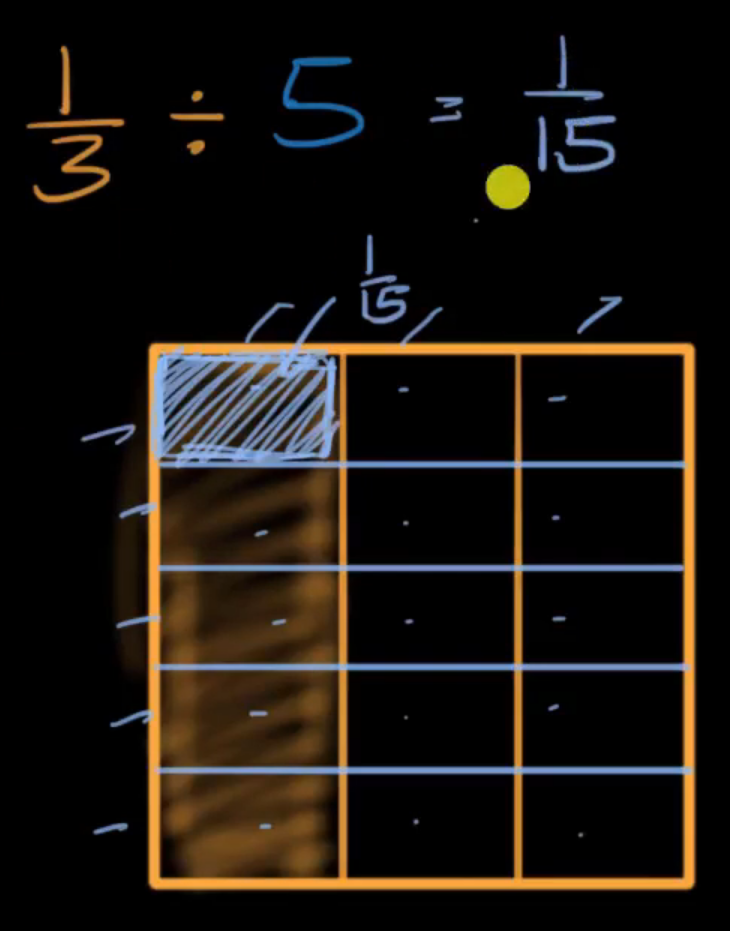 1/3 ÷ 5 = 1/15
1/15